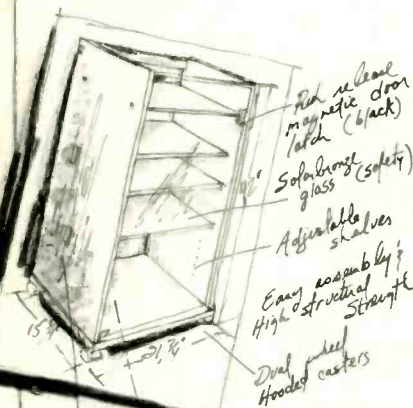 release
magnetic door
latch (black)
Solarbronze
glass (safety)
Adjustable
shelves
Easy assembly &
High structural
Strength
Dual wheel
Hooded casters